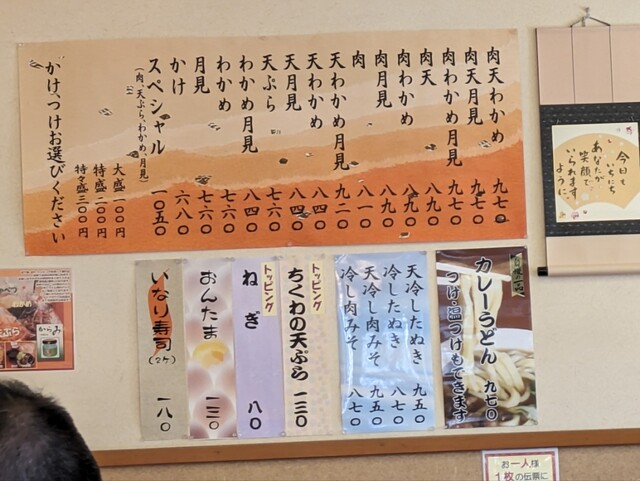 肉天わかめ 九七〇
肉天月見 九七〇
肉わかめ月見 九七〇
肉天 八九〇
肉わかめ 八九〇
肉月見 八九〇
肉 八一〇
天わかめ月見 九二〇
天わかめ 八四〇
天月見 八四〇
天ぷら 七六〇
わかめ月見 八四〇
わかめ 七六〇
月見 七六〇
かけ 六八〇
スペシャル 一〇五〇
(肉、天ぷら、わかめ、月見)
大盛一〇〇円
特盛二〇〇円
特々盛三〇〇円
かけ、つけお選びください
今日も
いちにち
あなたが
笑顔で
いられます
ように
カレーうどん 九七〇
つけ・温つけもできます
天冷したぬき 九五〇
冷したぬき 八七〇
天冷し肉みそ 九五〇
冷し肉みそ 八七〇
トッピング
ちくわの天ぷら 一三〇
トッピング
ねぎ 八〇
おんたま 一三〇
いなり寿司(2ケ) 一八〇
わかめ
天ぷら
からみ
お一人様
1枚の伝票に